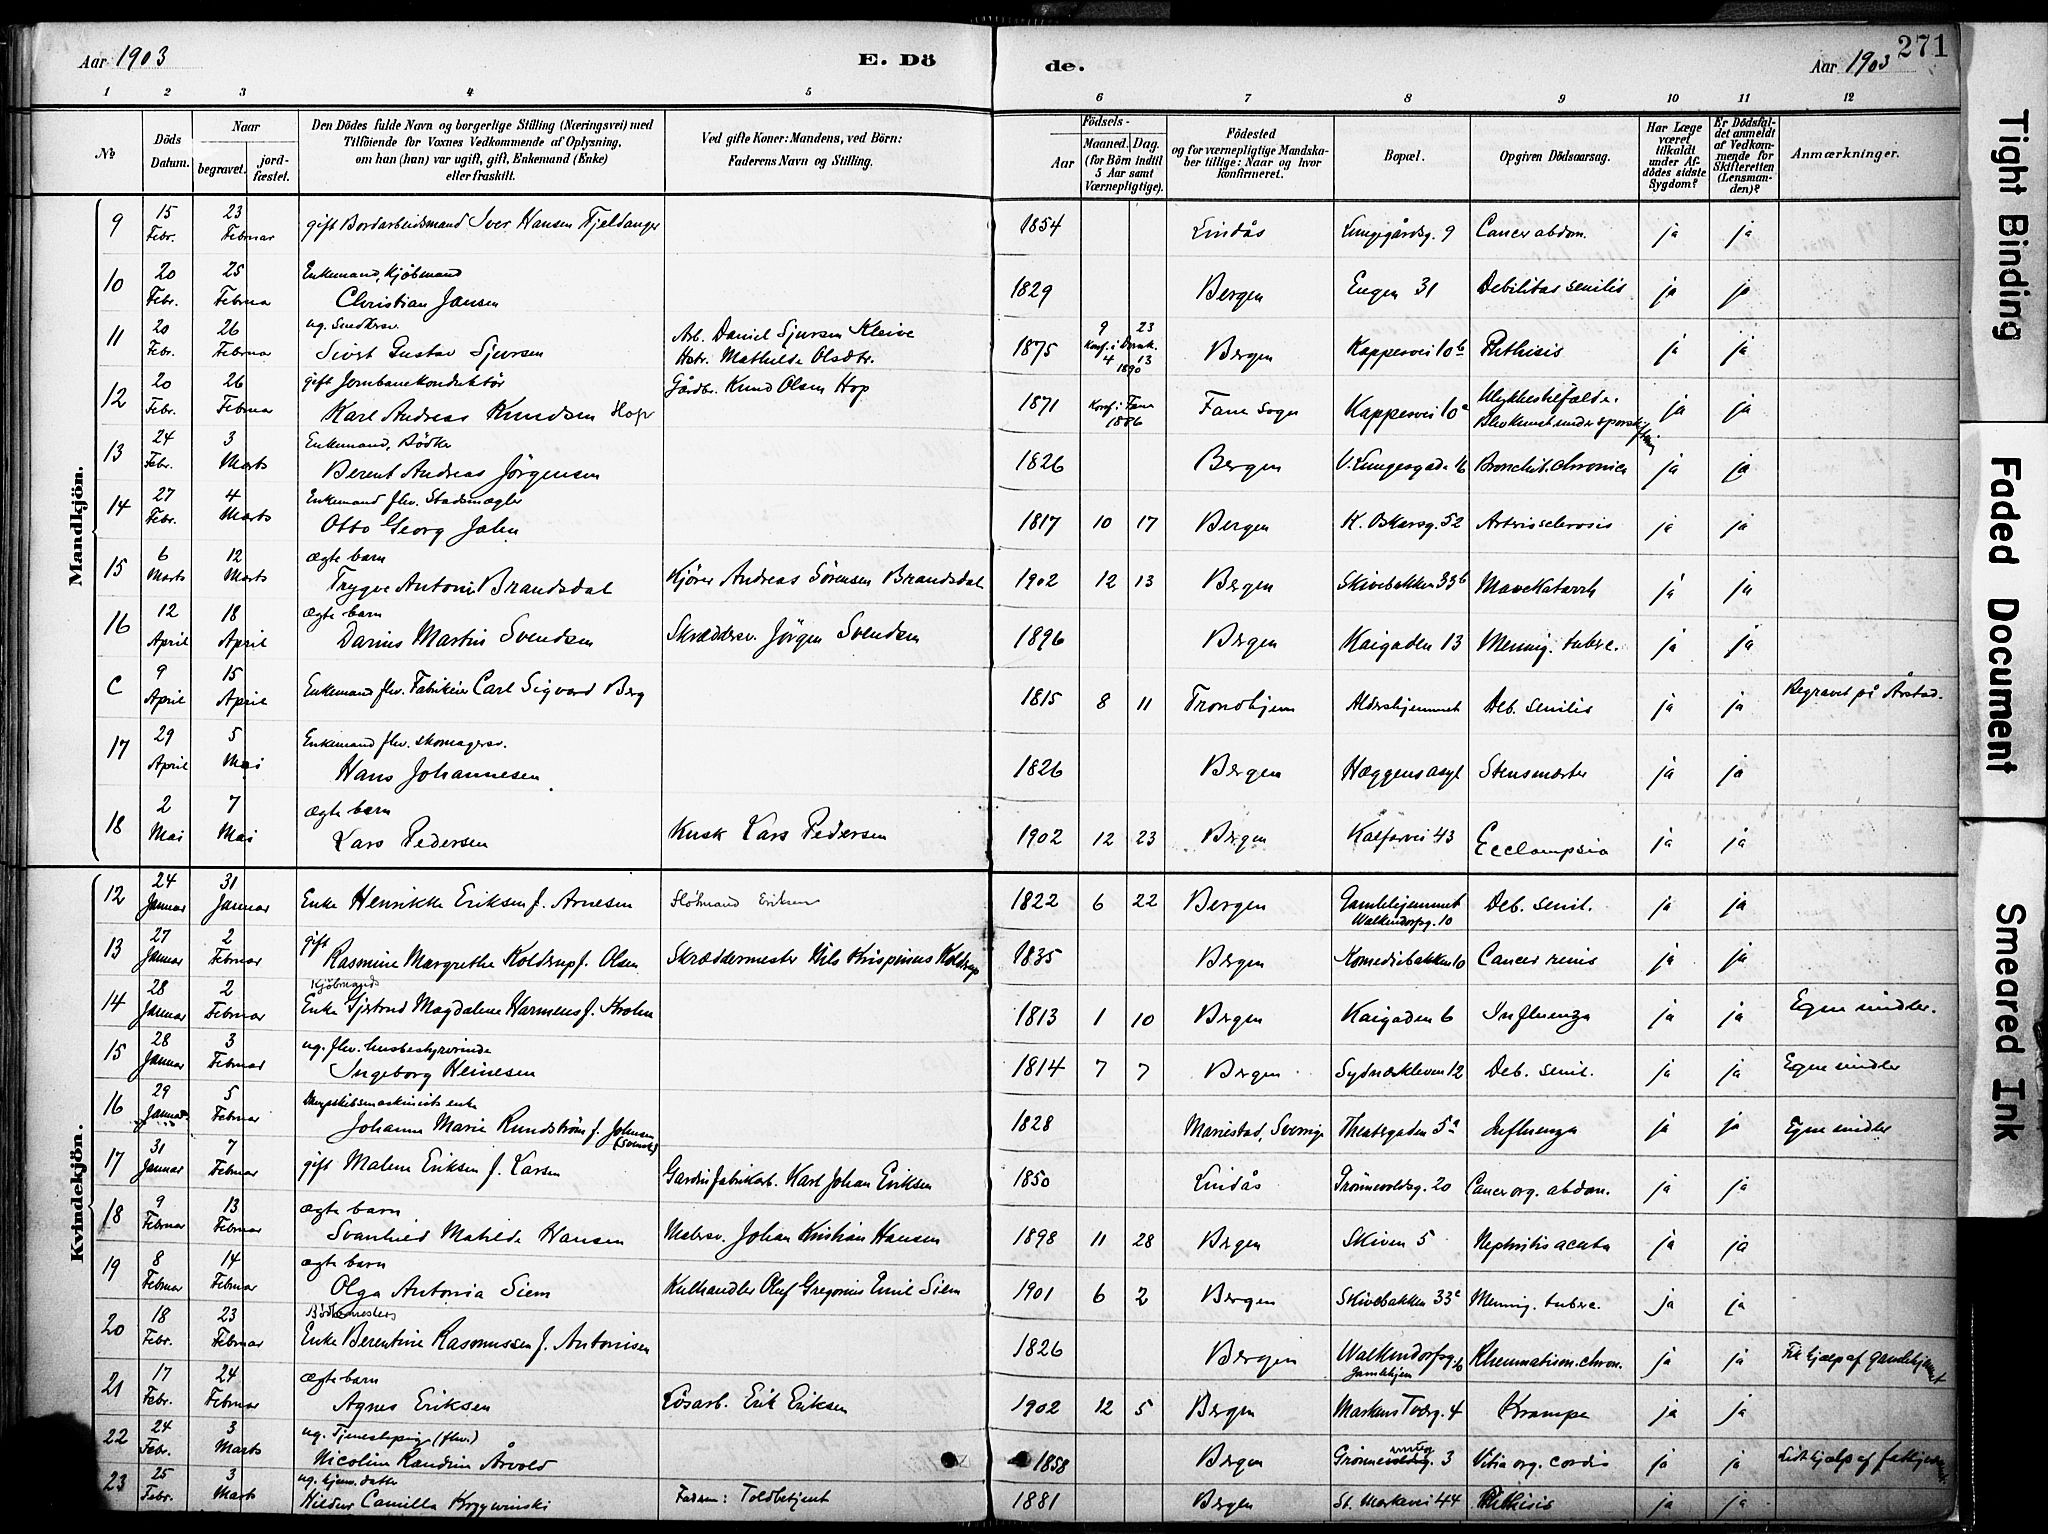 Aar 1903 E. Dö de. Aar 1903 271
1 2 3 4 5 6 7 8 9 10 11 12
№ Döds Datum. Naar begravet. jordfæstet. Den Dödes fulde Navn og borgerlige Stilling (Næringsvei) med Tilföiende for Voxnes Vedkommende af Oplysning, om han (hun) var ugift, gift, Enkemand (Enke) eller fraskilt. Ved gifte Koner: Mandens, ved Börn: Faderens Navn og Stilling. Födsels- Aar Maaned. Dag. (for Börn indtil 5 Aar samt Værnepligtige). Födested og for værnepligtige Mandskaber tillige: Naar og hvor konfirmeret. Bopæl. Opgiven Dödsaarsag. Har Læge været tilkaldt under Afdödes sidste Sygdom? Er Dödsfaldet anmeldt af Vedkommende for Skifteretten (Lensmanden)? Anmærkninger.
Mandkjön.
9 15 Febr. 23 Februar gift Bordarbeidsmand Iver Hansen Fjeldanger 1854 Lindås Lungegårdsg. 9 Cancer abdom. ja ja
10 20 Febr. 25 Februar Enkemand, Kjøbmand Christian Jansen 1829 Bergen Engen 31 Debilitas senilis ja ja
11 20 Febr. 26 Februar ug. Snedkersv. Sivert Gustav Sjursen Arb. Daniel Sjursen Kleive Hstr. Mathilde Olsdtr. 1875 9 23 Konf. i Domk. 4 13 1890 Bergen Kappesvei 10b Phthisis ja ja
12 20 Febr. 26 Februar gift Jernbanekonduktør Karl Andreas Knudsen Hop Gårdbr. Knud Olsen Hop 1871 Konf. i Fane 1886 Fane Sogn Kappesvei 10a Ulykkestilfælde. Blev klemt under ja ja
13 24 Febr. 3 Marts Enkemand, Bødker Berent Andreas Jörgensen 1826 Bergen V. Lungesgade 16 Bronchit. chronica ja ja
14 27 Febr. 4 Marts Enkemand fhv. Stadsmægler Otto Georg Jahn 1817 10 17 Bergen K. Oskarsg. 52 Arteriosclerosis ja ja
15 6 Marts 12 Marts ægte barn Trygve Antoni Brandsdal Kjører Andreas Sörensen Brandsdal 1902 12 13 Bergen Skivebakken 33b Mavekatarrh ja ja
16 12 April 18 April ægte barn Darius Martin Svendsen Skræddersv. Jörgen Svendsen 1896 Bergen Kaigaden 13 Mening. tuberc. ja ja
C 9 April 15 April Enkemand fhv. Fabrikeier Carl Sigvard Berg 1815 8 11 Trondhjem Aldershjemmet Deb. senilis ja ja Begravet på Årstad.
17 29 April 5 Mai Enkemand fhv. skomagersv. Hans Johannesen 1826 Bergen Hæggens asyl Stensmerter ja ja
18 2 Mai 7 Mai ægte barn Lars Pedersen Kusk Lars Pedersen 1902 12 23 Bergen Kalfarvei 43 Ecclampsia ja ja
Kvindekjön.
12 24 Januar 31 Januar Enke Henrikke Eriksen f. Arnesen Eriksen 1822 6 22 Bergen Gamlehjemmet Walkendorfsg. 10 Deb. senil. ja ja
13 27 Januar 2 Februar gift Rasmine Margrethe Koldrup f. Olsen Skræddermester Nils Krispinus Koldrup 1835 Bergen Komediebakken 10 Cancer renis ja ja
14 28 Januar 2 Februar Kjøbmands Enke Gjertrud Magdalene Harmens f. Krohn 1813 1 10 Bergen Kaigaden 6 Influenza ja ja Egne midler.
15 28 Januar 3 Februar ug. fhv. husbestyrerinde Ingeborg Heinesen 1814 7 7 Bergen Sydnæskleven 12 Deb. senil. ja ja Egne midler
16 29 Januar 5 Februar Dampskibsmaskinists enke Johanne Marie Rundström f. Johnsen (svensk) 1828 Mariestad, Sverige Theatergaden 5a Influenza ja ja Egne midler
17 31 Januar 7 Februar gift Malene Eriksen f. Larsen Gardinfabrikarb. Karl Johan Eriksen 1850 Lindås Grönnevoldsg. 20 Cancer org. abdom. ja ja
18 9 Februar 13 Februar ægte barn Svanhild Matilde Hansen Malersv. Johan Kristian Hansen 1898 11 28 Bergen Skiven 5 Nephritis acuta ja ja
19 8 Februar 14 Februar ægte barn Olga Antonia Siem Kulhandler Oluf Gregorius Emil Siem 1901 6 2 Bergen Skivebakken 33c Mening. tuberc. ja ja
20 18 Febr. 23 Februar Bødkermesters Enke Berentine Rasmussen f. Antonisen 1826 Bergen Walkendorfsg. 10 Gamlehjem Rheumatism. chron. ja ja Fik hjælp af gamlehjemmet
21 17 Febr. 24 Februar ægte barn Agnes Eriksen Lösarb. Erik Eriksen 1902 12 5 Bergen Markens Tverg. 4 Krampe ja ja
22 24 Febr. 3 Marts ug. Tjenestepige (fhv.) Nicoline Randine Årvold 1858 Bergen Grönnevoldsg. 3 Vitia org. cordis ja ja Lidt hjælp af
23 25 Febr. 3 Marts ug. hjem. datter Hildur Camilla Krzywinski Faren: Toldbetjent 1881 Bergen St. Markevei 44 Phthisis ja ja
Tight Binding
Faded Document
Smeared Ink